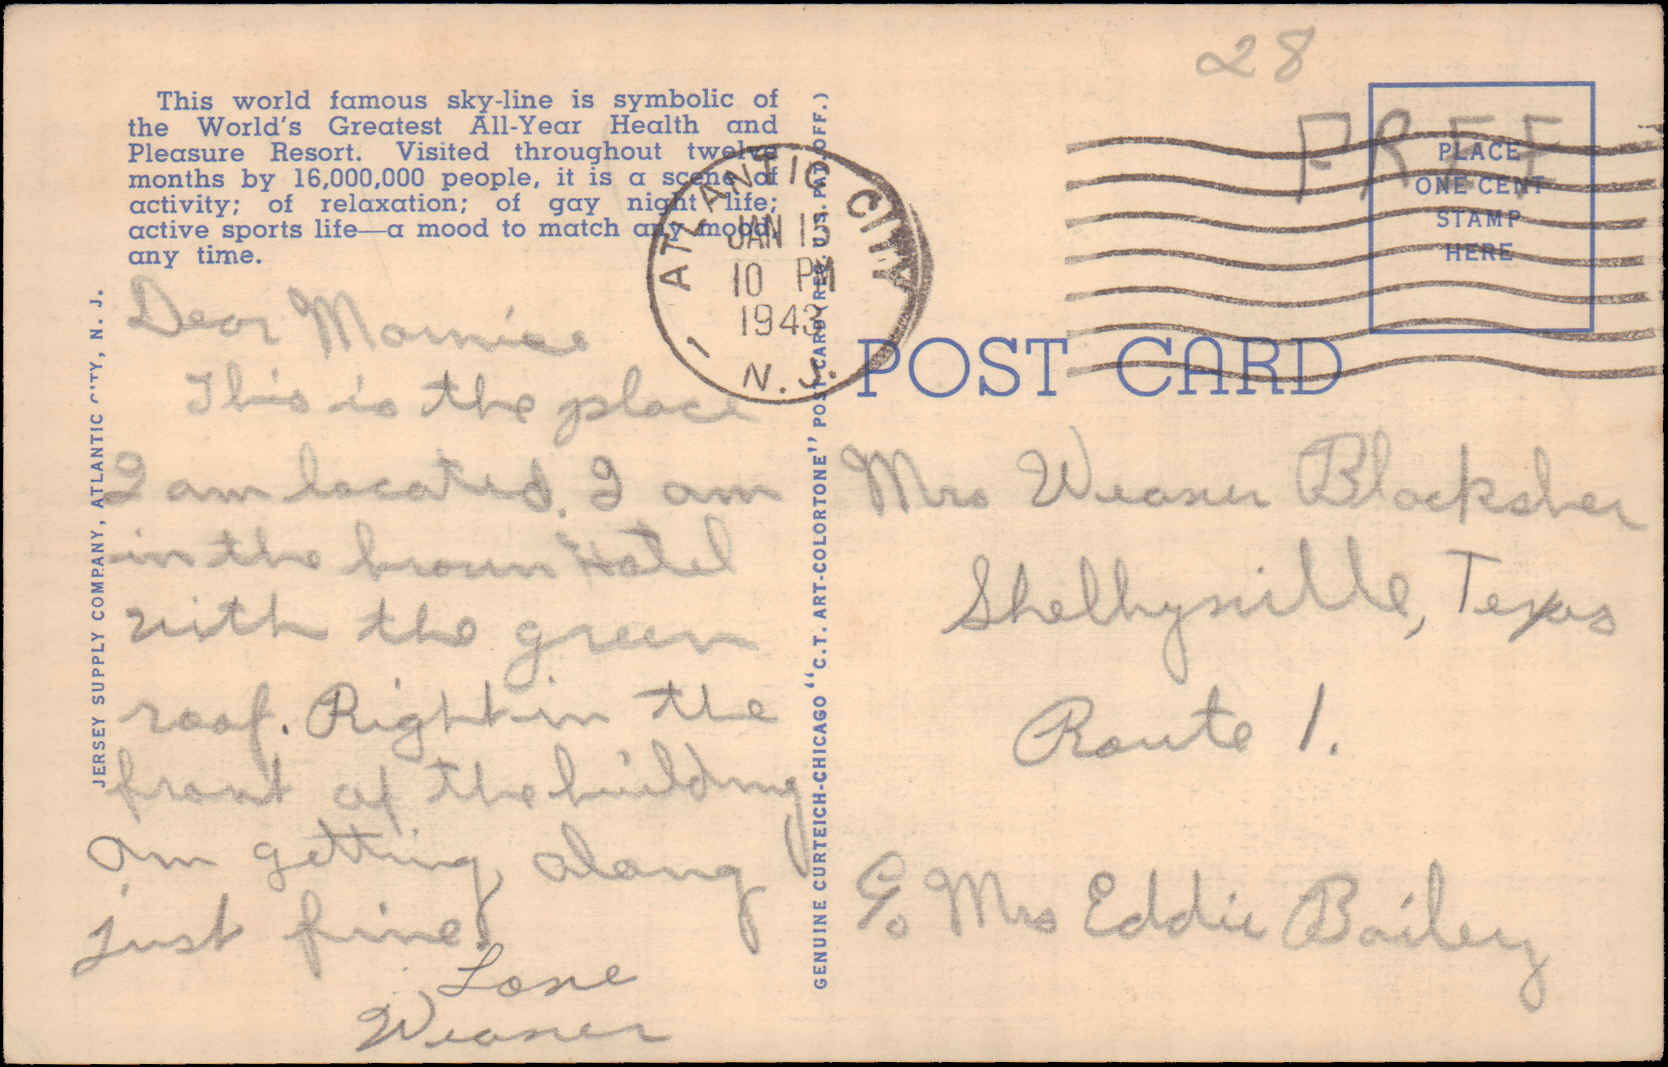 28
FREE
This world famous sky-line is symbolic of
the World's Greatest All-Year Health and
Pleasure Resort. Visited throughout twelve
months by 16,000,000 people, it is a scene of
activity; of relaxation; of gay night life;
active sports life—a mood to match any mood,
any time.
ATLANTIC CITY
JAN 15
10 PM
1943
1 N.J.
PLACE
ONE CENT
STAMP
HERE
POST CARD
Dear
This is the place
I am located. I am
in the brown Hotel
with the green
roof. Right in the
front of the building
am getting along
just fine.
Love
Weaver
Mrs Weaver Blocksher
Shelbyville, Texas
Route 1.
c/o Mrs Eddie Bailey
JERSEY SUPPLY COMPANY, ATLANTIC CITY, N. J.
GENUINE CURTEICH-CHICAGO "C.T. ART-COLORTONE" POST CARD (REG. U.S. PAT. OFF.)